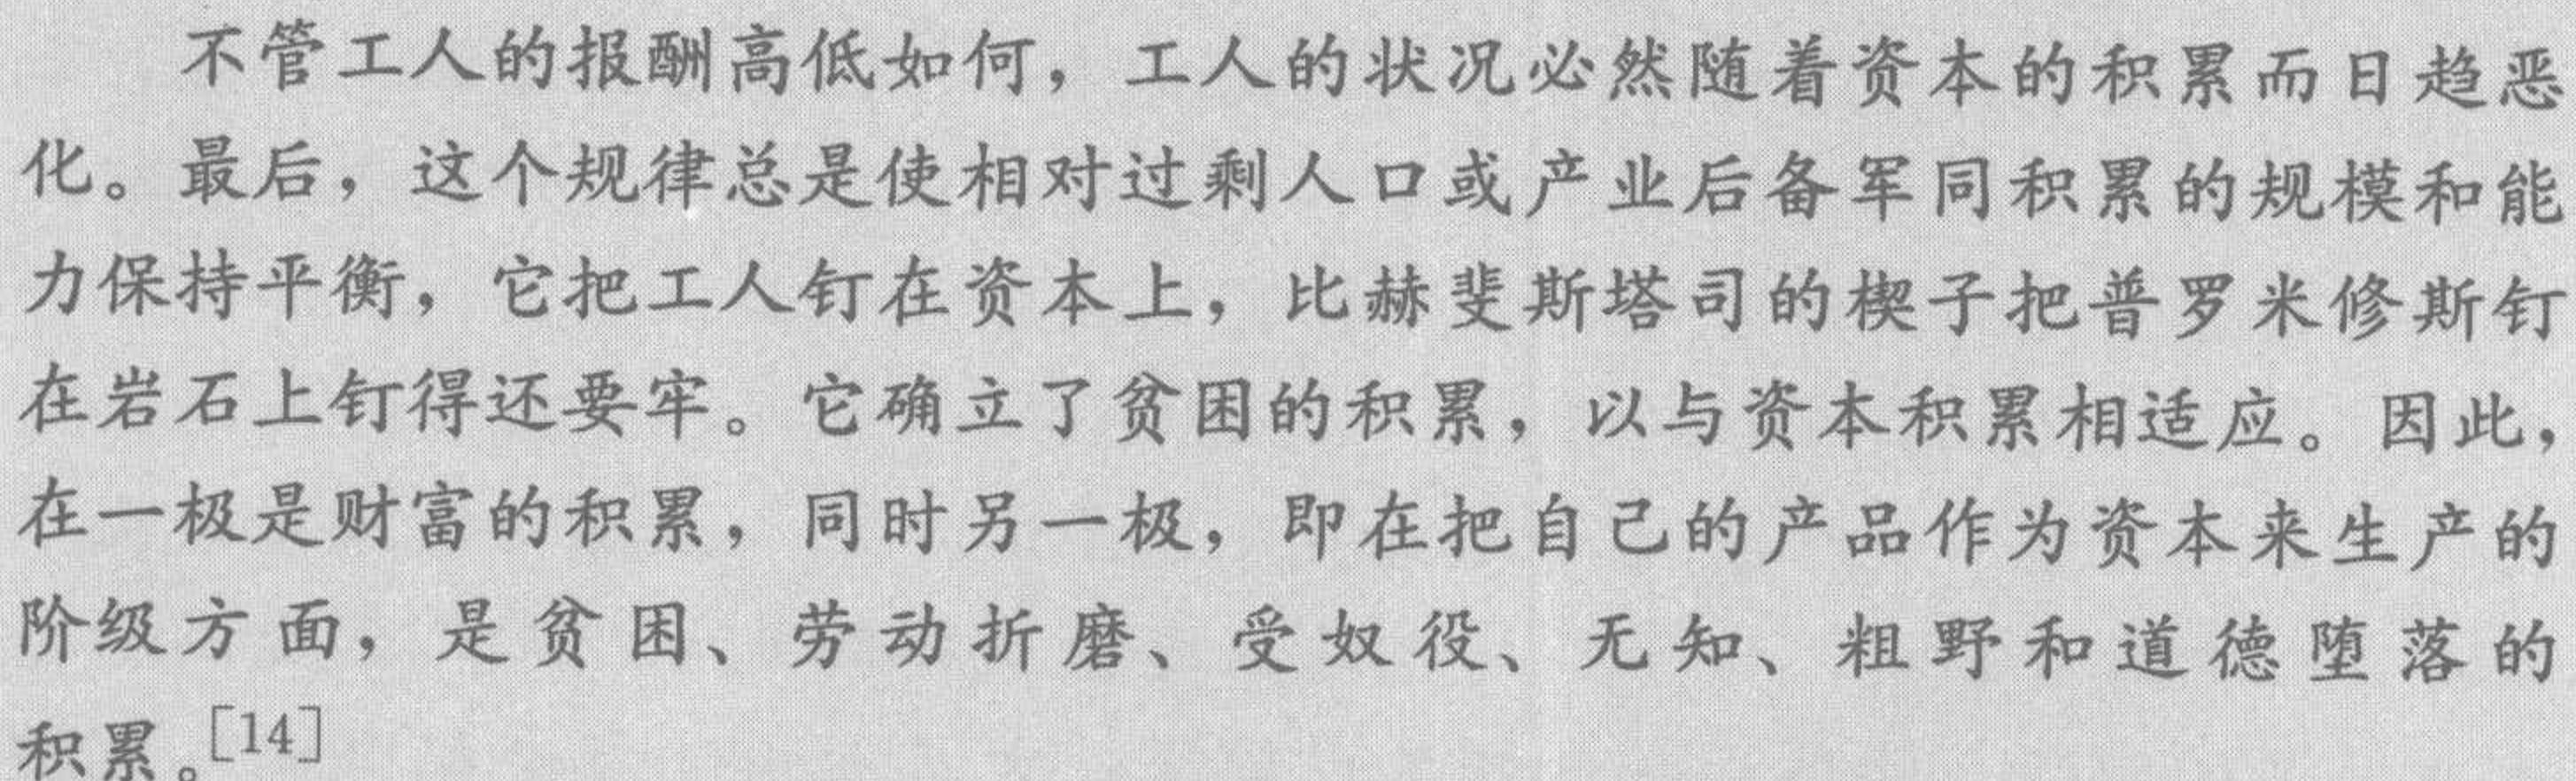 不管工人的报酬高低如何，工人的状况必然随着资本的积累而日趋恶
化。最后，这个规律总是使相对过剩人口或产业后备军同积累的规模和能
力保持平衡，它把工人钉在资本上，比赫斐斯塔司的楔子把普罗米修斯钉
在岩石上钉得还要牢。它确立了贫困的积累，以与资本积累相适应。因此，
在一极是财富的积累，同时另一极，即在把自己的产品作为资本来生产的
阶级方面，是贫困、劳动折磨、受奴役、无知、粗野和道德堕落的
积累。[14]